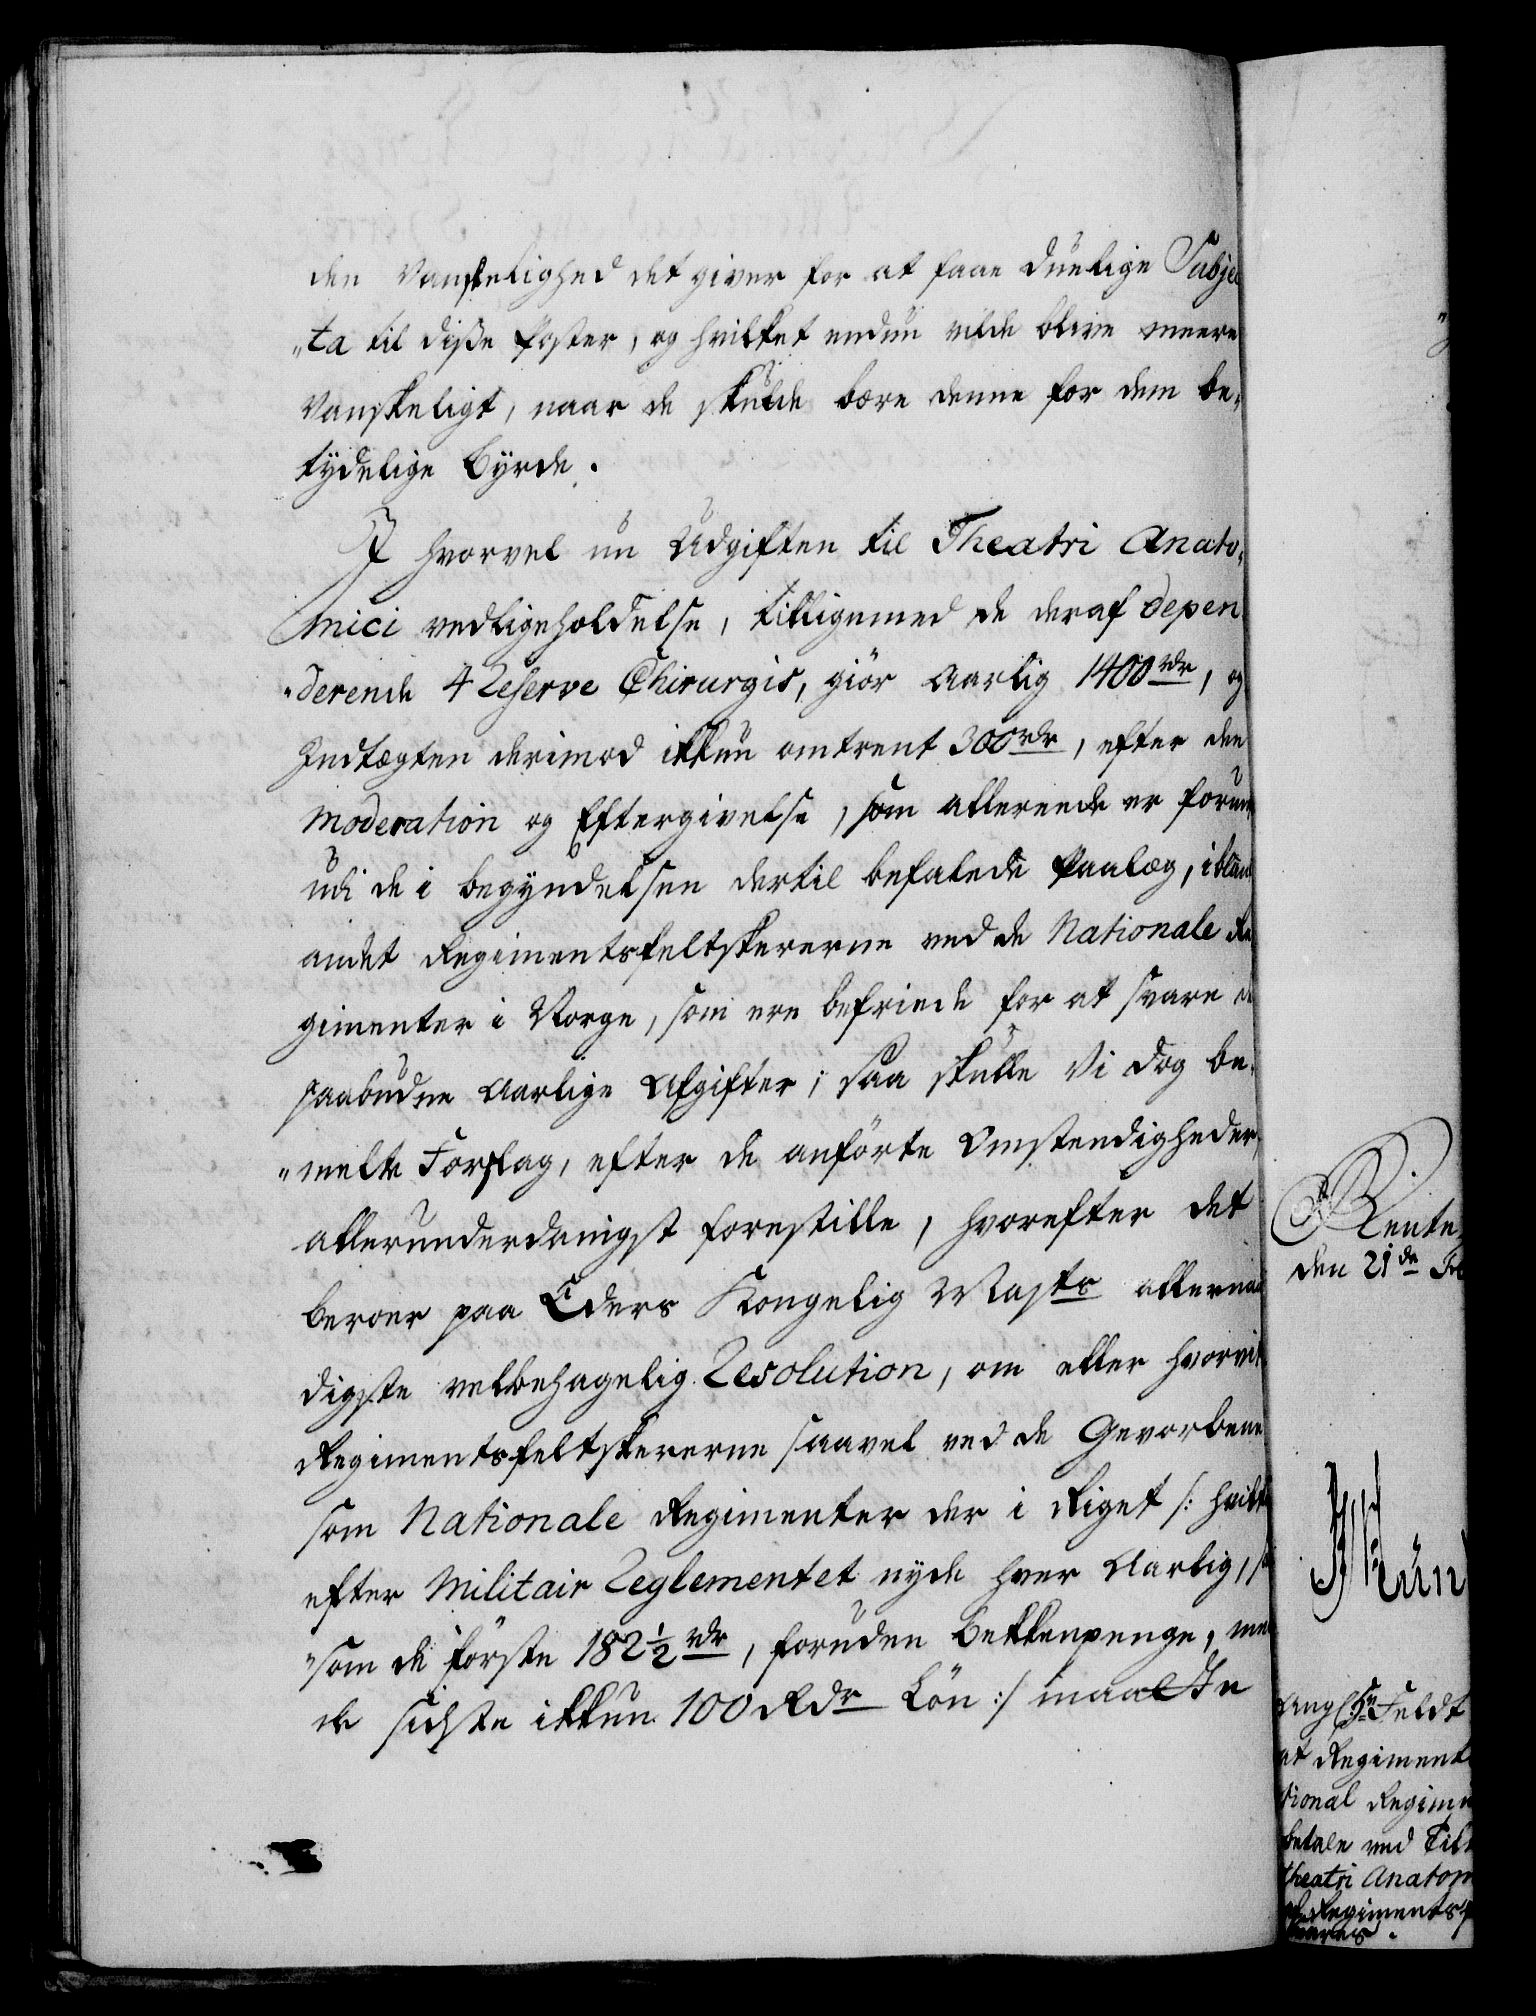 den Vanskelighed det giver for at faae duelige Subjec
"ta til disse Poster, og hvilket endnu vilde blive meere
Vanskeligt, naar de skulde bære denne for dem be-
tydelige Byrde.
I hvorvel nu Udgiften til Theatri Anato-
mici vedligeholdelse, tilligemed de deraf depen
"derende 4 Reserve Chirurgis, giör aarlig 1400 rdr, og
Indtægten derimod ikkun omtrent 300 rdr, efter den
Moderation og Eftergivelse, som allerede er
udi de i begyndelsen dertil befalede Paalæg, iblant
andet Regimentsfeltskererne ved de Nationale Re
gimenter i Norge, som ere befriede for at svare de
paabudne aarlige Afgifter; saa skulle Vi dog be-
"melte Forslag, efter de anförte Omstendigheder,
allerunderdanigst forestille, hvorefter det
beroer paa Eders Kongelig Mayts allernaa
digste velbehagelig Resolution, om eller hvorvit
Regimentsfeltskererne saavel ved de Gevorbene
som Nationale Regimenter der i Riget /: hvilke
efter Militair Reglementet nyde hver aarlig,
"som de förste 182½ rdr, foruden Bekkenpenge, men
de sidste ikkun 100 Rdr Lön :/ maatte
Rente
den 21de Fe
ang Feldt
at Regiment
tional Regim
betale ved Til
Theatri Anatom
Regiments